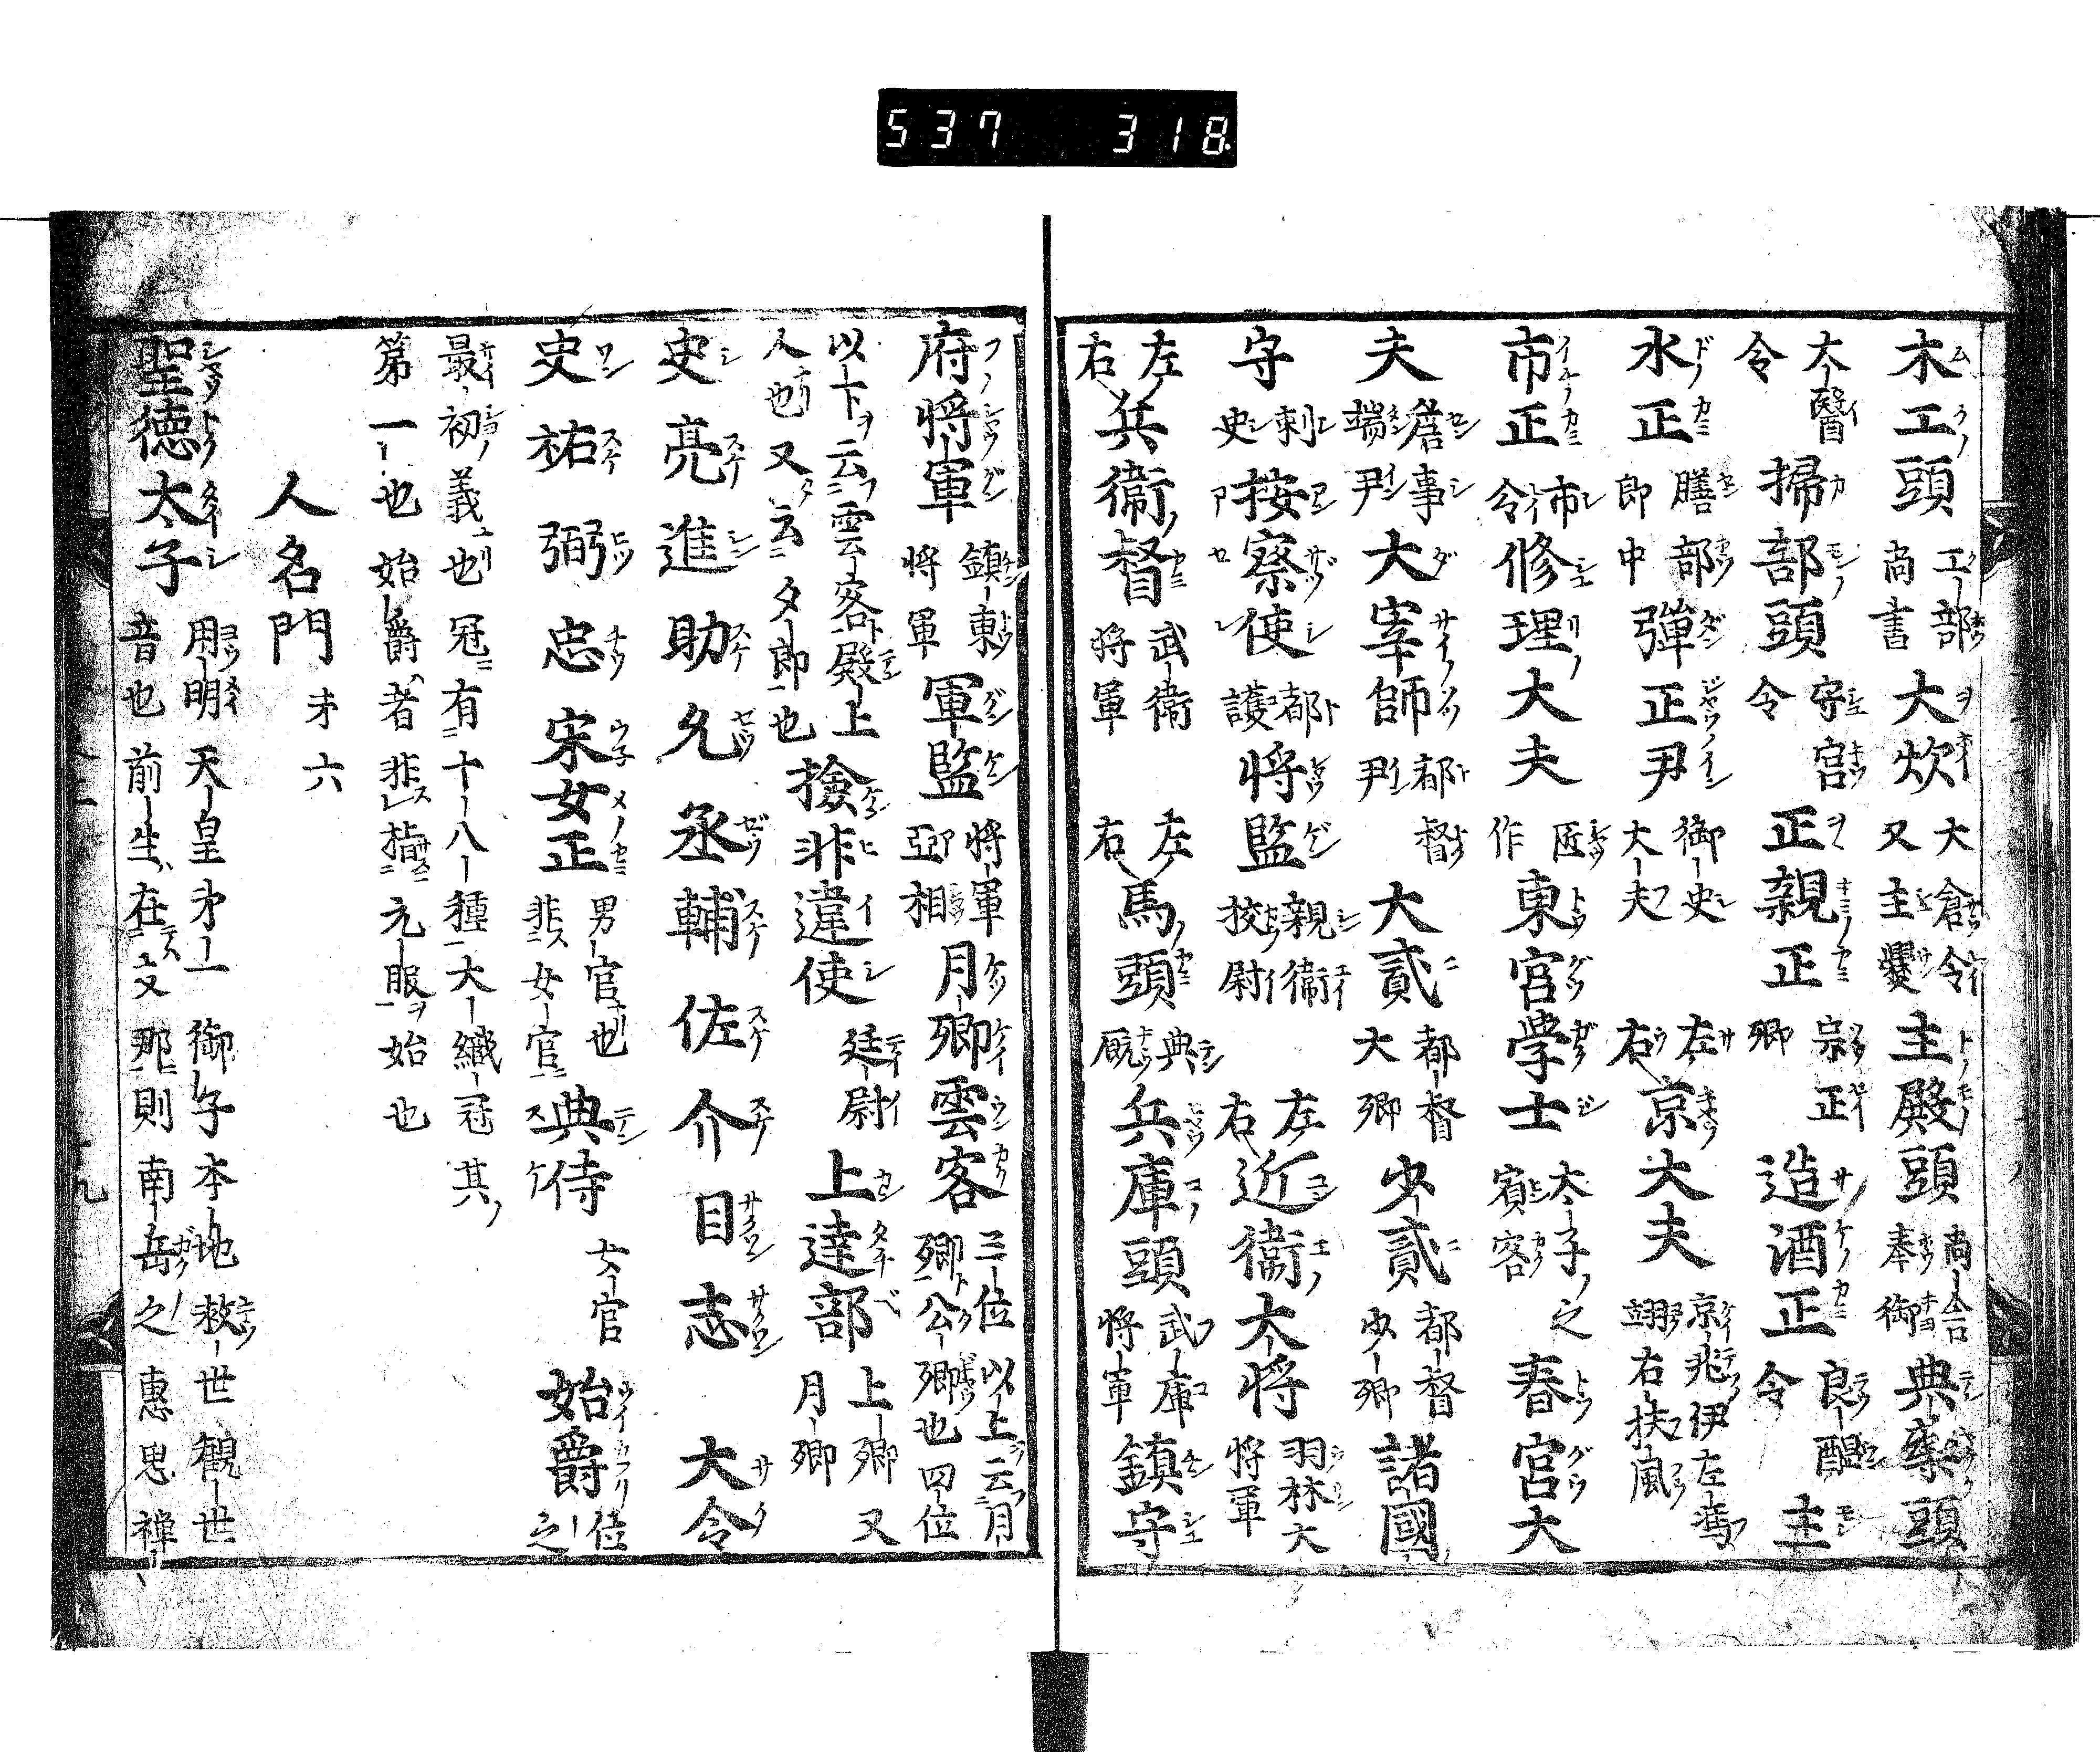 537 318
木工頭 工部尚書 大炊 大倉令又主爨 主殿頭 尚舎奉御 典薬頭
太醫令 掃部頭 守宮令 正親正 宗正卿 造酒正 良醞令 主
水正 膳部郎中 彈正尹 御史大夫 左右京大夫 京兆伊左馮翊右扶風
市正 市令 修理大夫 匠作 東宮学士 太子之賓客 春宮大
夫 詹事端尹 大宰師 都督都尹 大貳 都督大卿 少貳 都督少卿 諸國
守 刺史 按察使 都護 将監 親衛挍尉 左右近衛大将 羽林大将軍
左右兵衛督 武衛将軍 左右馬頭 典厩 兵庫頭 武庫将軍 鎮守
府将軍 鎮東将軍 軍監 将軍亞相 月卿雲客 三位以上云月卿公卿也四位
以下云雲客殿上人也又云夕郎也 撿非違使 廷尉 上達部 上卿又月卿
史亮進助允丞輔佐介目志 大令
史祐弼忠 宋女正 男官也非女官 典侍 女官 始爵 位之
最初義也冠有十八種大織冠其
第一也始爵者非指元服始也
人名門 才六
聖徳太子 用明天皇才一御子本地救世観世音也前生在文那則南岳之恵思禅